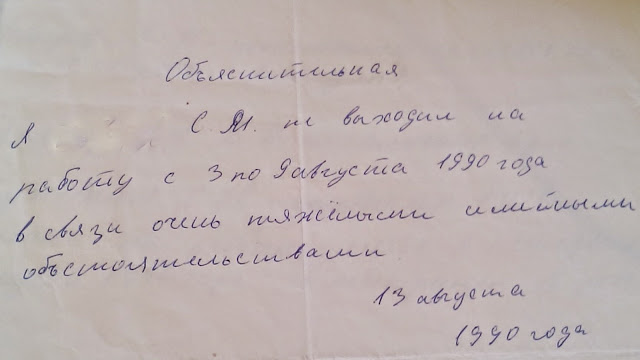 Объяснительная
Я С.М. не выходил на
работу с 3 по 9 августа 1990 года
в связи очень тяжёлыми
объстоятельствами
13 августа
1990 года